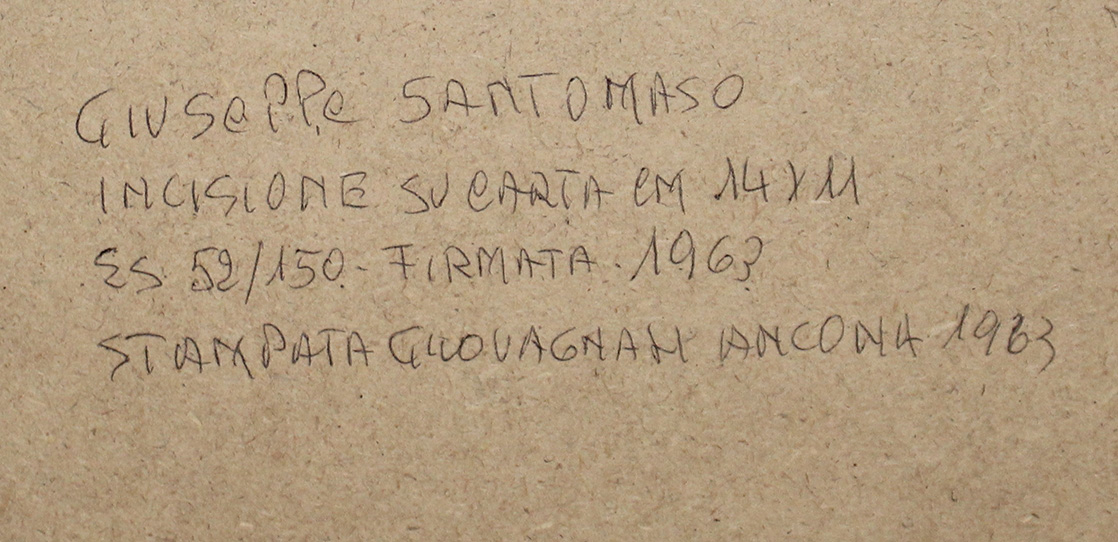 GIUSePPe SANTOMASO
INCISIONE SU CARTA CM 14X11
ES. 52/150. FIRMATA. 1963
STAMPATA ANCONA 1963